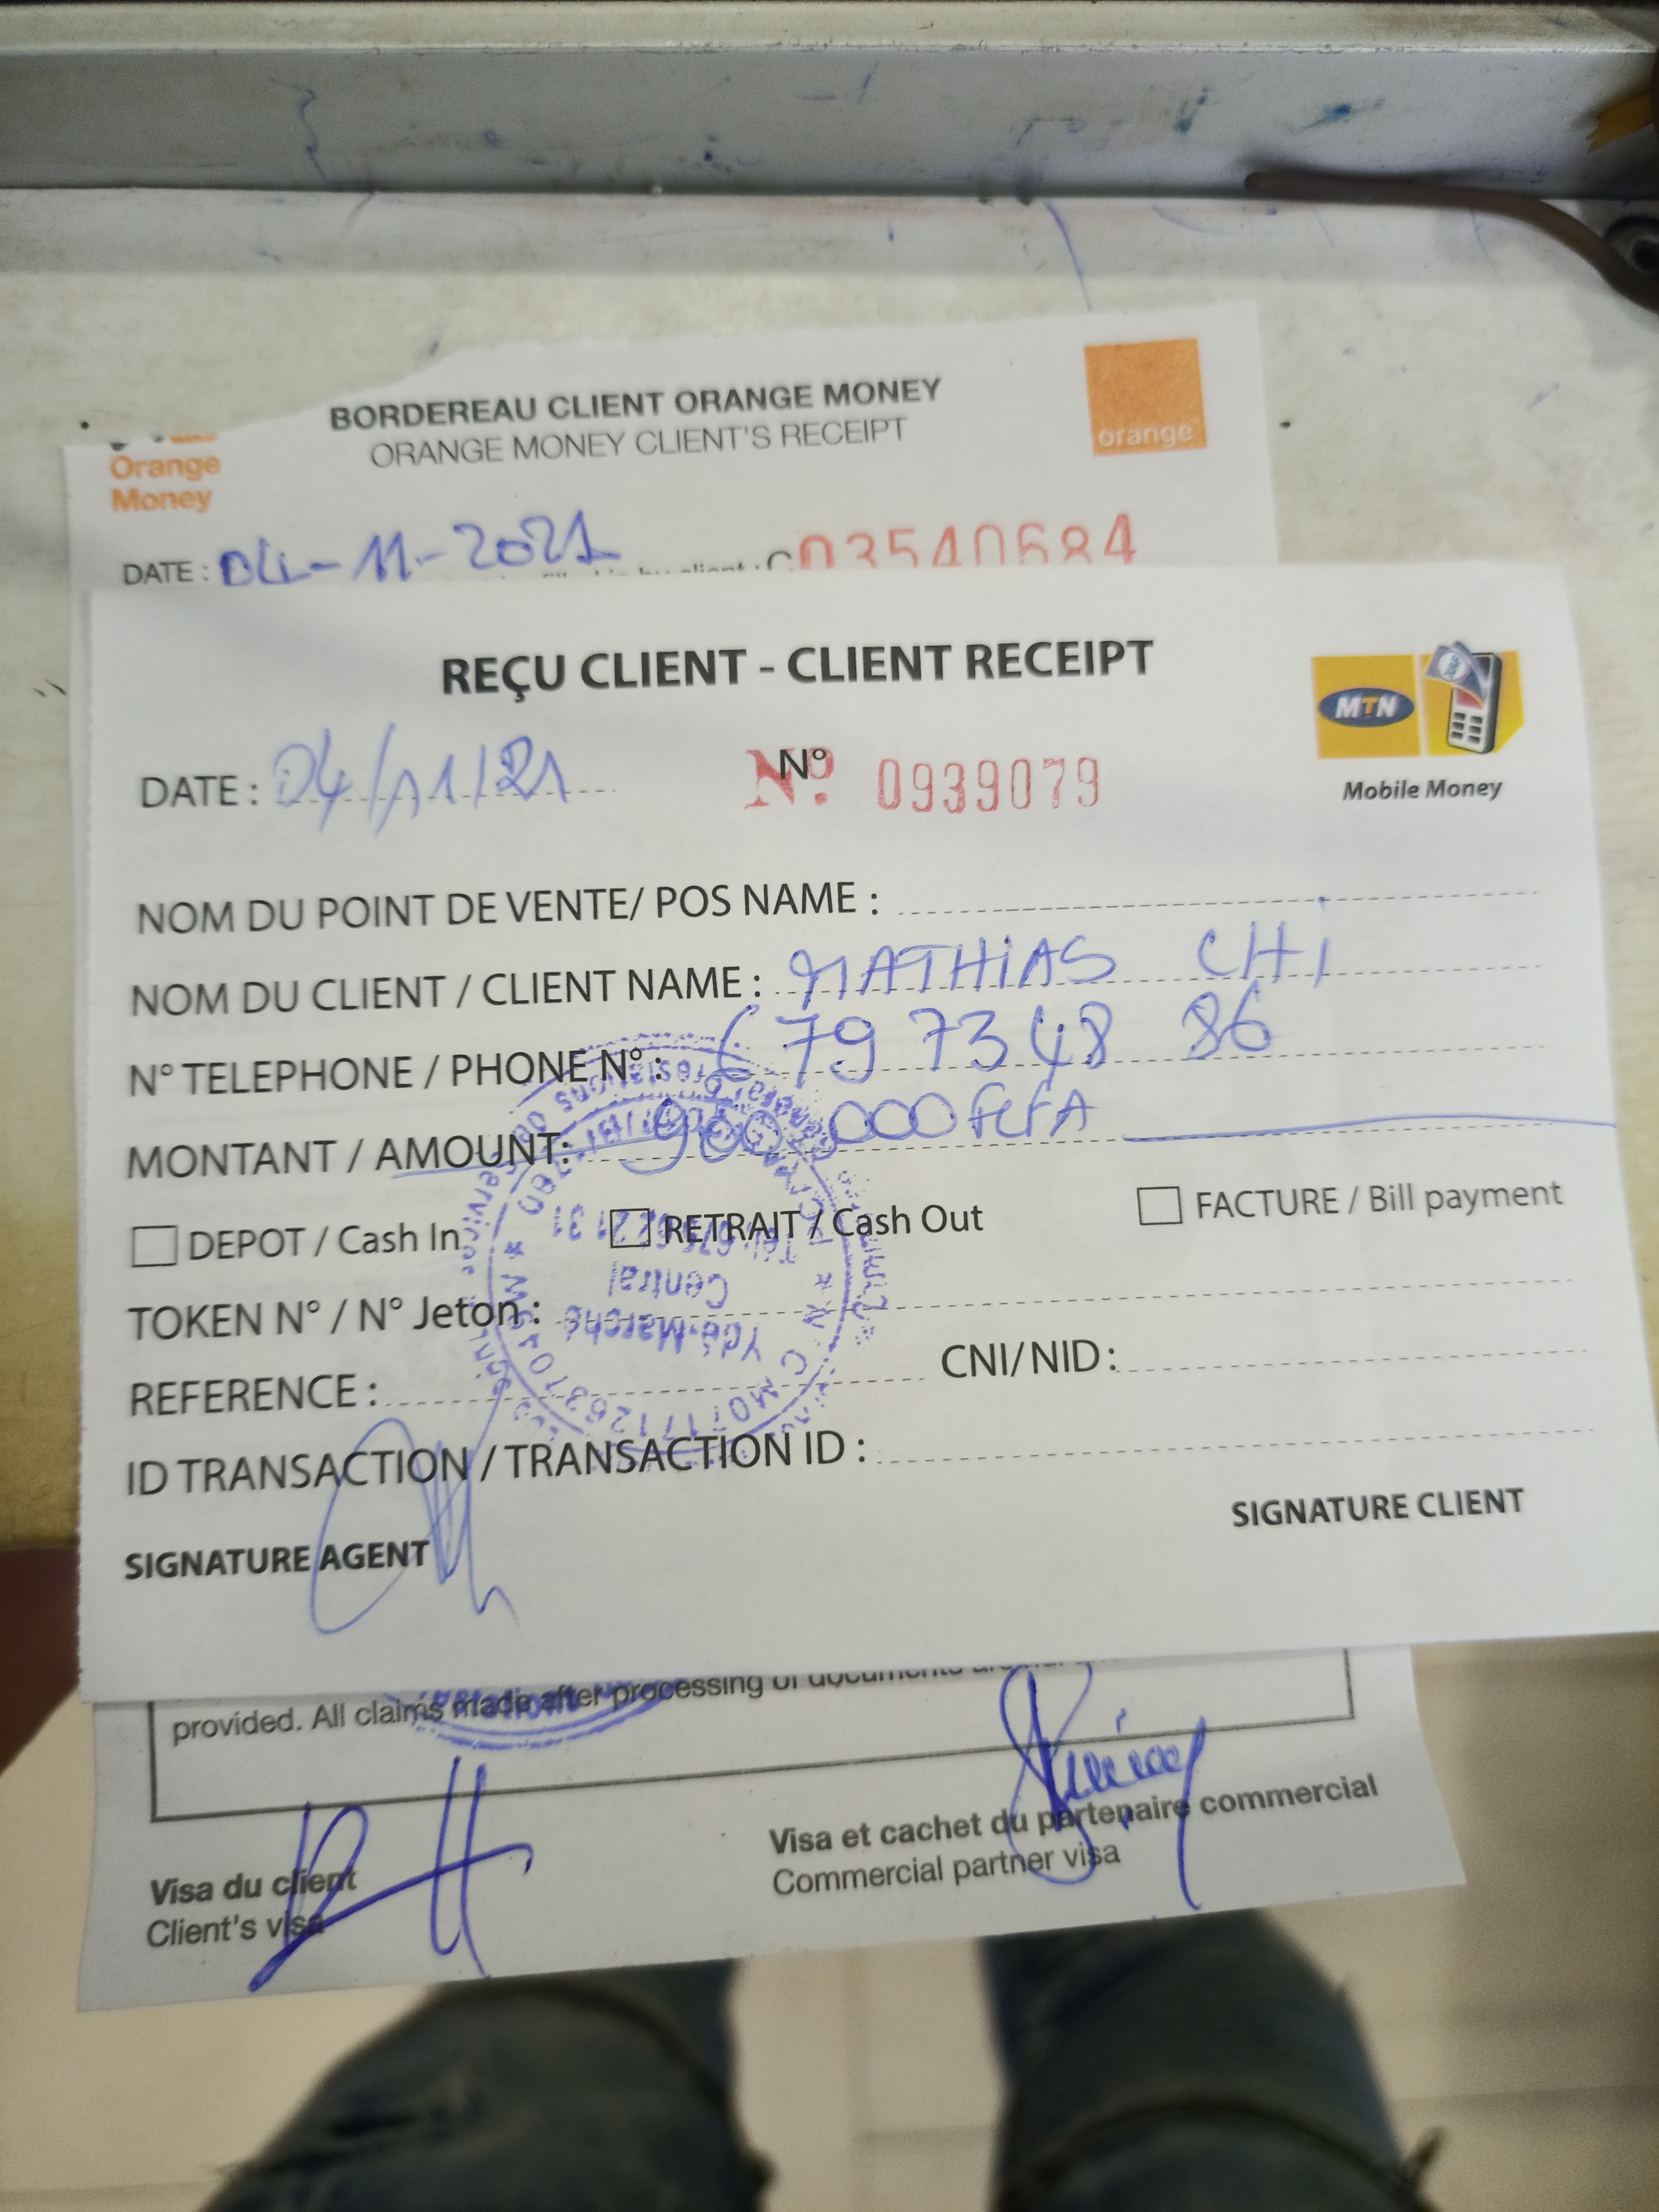 BORDEREAU CLIENT ORANGE MONEY
ORANGE MONEY CLIENT'S RECEIPT
orange
Orange
Money
DATE : 04-11-2021
03540684
REÇU CLIENT - CLIENT RECEIPT
MTN
Mobile Money
DATE : 04/11/21 N° Nº. 0939079
NOM DU POINT DE VENTE/ POS NAME :
NOM DU CLIENT / CLIENT NAME : MATHIAS CHI
N° TELEPHONE / PHONE N° : 679 73 48 86
MONTANT / AMOUNT: 900.000 FCFA
DEPOT / Cash In RETRAIT / Cash Out FACTURE / Bill payment
TOKEN N° / N° Jeton :
REFERENCE : CNI/NID :
ID TRANSACTION / TRANSACTION ID :
SIGNATURE AGENT SIGNATURE CLIENT
Ydé-Marché
Central
provided. All claims made after processing of documents
Visa du client
Client's visa
Visa et cachet du partenaire commercial
Commercial partner visa